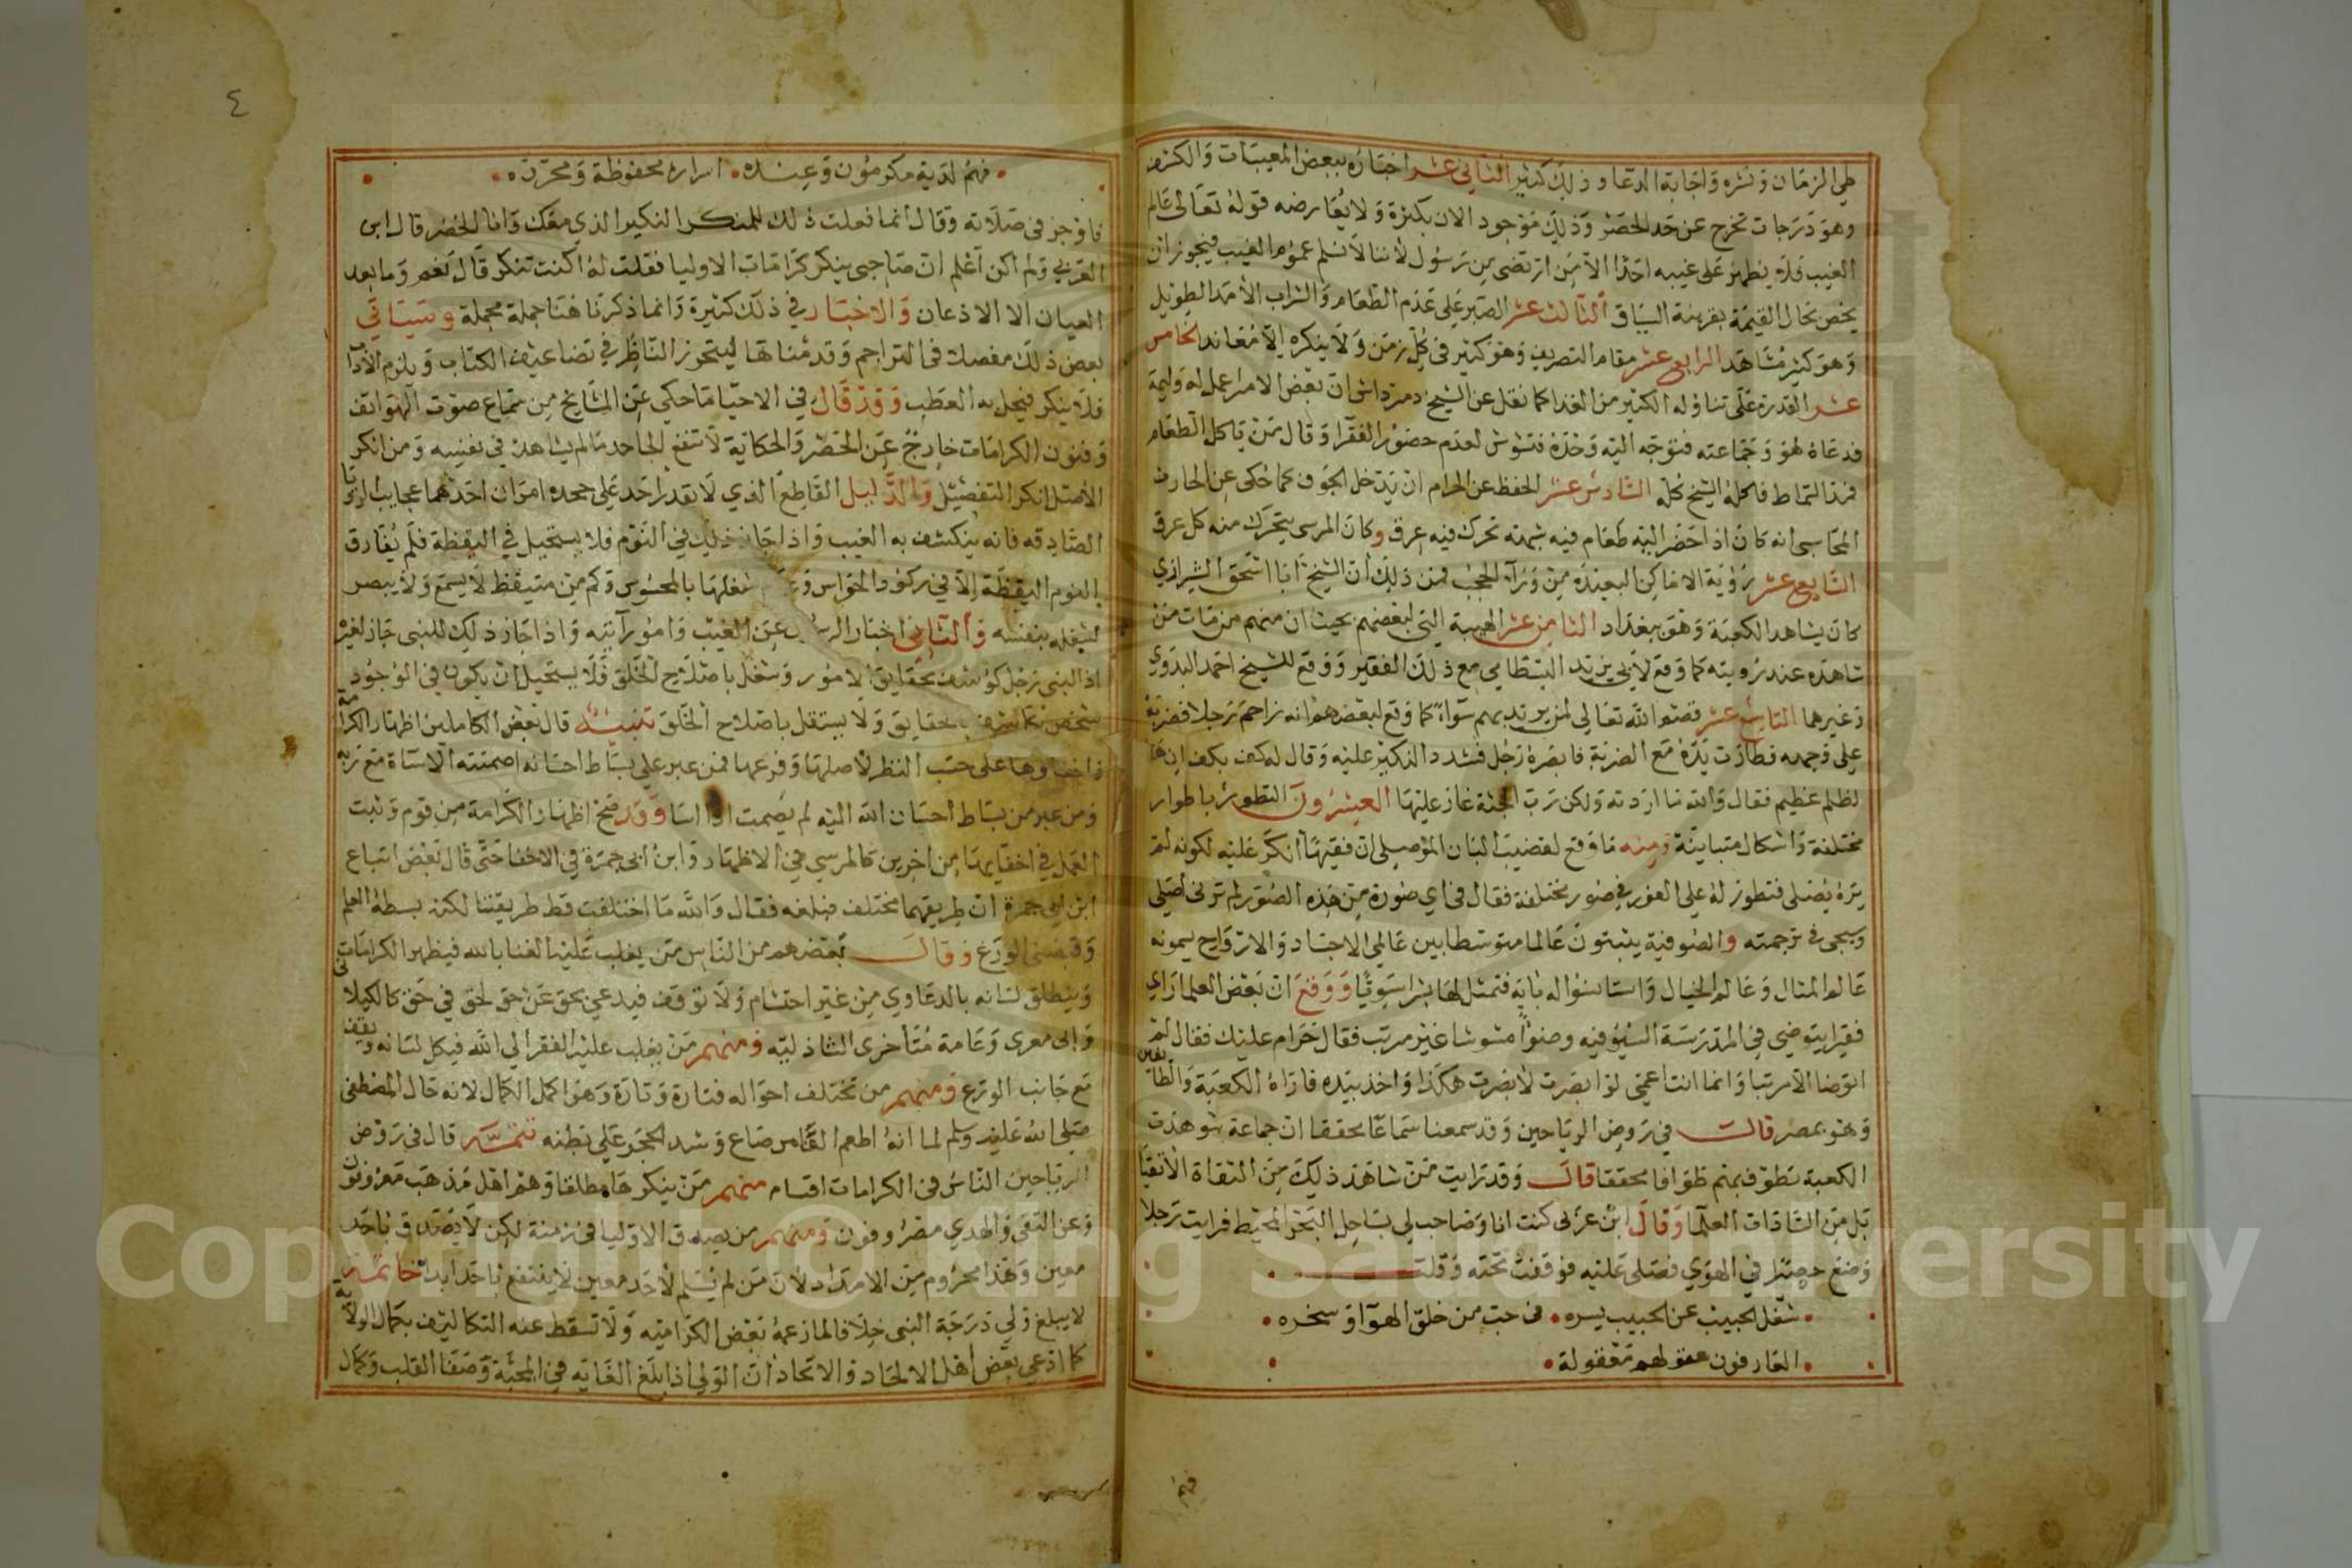 طي الزمان ونشره واجابة الدعا وذلك كثير الثاني عشر اخباره ببعض المغيبات والكشف
وهو درجات تخرج عن حد الحصر وذلك موجود الان بكثرة ولا يعارضه قوله تعالى عالم
الغيب فلا يظهر على غيبه احدا الا من ارتضى من رسول لأننا لا نسلم عموم الغيب فيجوز ان
يخص بحال القيمة بقرينة السياق الثالث عشر الصبر على عدم الطعام والشراب الأمد الطويل
وهو كثير مشاهد الرابع عشر مقام التصريف وهو كثير في كل زمن ولا ينكره الا معاند الخامس
عشر القدرة على تناوله الكثير من الغدا كما نقل عن الشيخ دمرداش ان بعض الامرا عمل له وليمة
فدعاه هو وجماعته فتوجه اليه وحده فتشوش لعدم حضور الفقرا وقال من ياكل الطعام
فمد السماط فاكله الشيخ كله السادس عشر الحفظ عن الحرام ان يدخل الجوف كما حكى عن الحارث
المحاسبي انه كان اذا حضر اليه طعام فيه شبهة تحرك فيه عرق وكان المرسى يتحرك منه كل عرق
السابع عشر رؤية الاماكن البعيدة من ورآ الحجب فمن ذلك ان الشيخ ابا اسحق الشيرازي
كان يشاهد الكعبة وهو ببغداد الثامن عشر الهيبة التي لبعضهم بحيث ان منهم من مات من
شاهده عند رويته كما وقع لأبي يزيد البسطامي مع ذلك الفقير ووقع للشيخ احمد البدوي
وغيرهما التاسع عشر قصم الله تعالى لمن يريد بهم سواء كما وقع لبعضهم انه زاحم رجلا فضربه
على وجهه فطارت يده مع الضربة فابصره رجل فشدد النكير عليه وقال له كف بكف ان هذا
لظلم عظيم فقال والله ما اردته ولكن رب الجثة غار عليها العشرون التطور باطوار
مختلفة واشكال متباينة ومنه ما وقع لقضيب البان الموصلي ان فقيها انكر عليه لكونه لم
يره يصلى فتطور له على الفور في صور مختلفة فقال في اي صورة من هذه الصور لم ترني اصلي
وسيجي في ترجمته والصوفية يثبتون عالما متوسطا بين عالمي الاجساد والارواح يسمونه
عالم المثال وعالم الخيال واستانسوا له باية فتمثل لها بشرا سويا ووقع ان بعض العلما راي
فقيرا يتوضى في المدرسة السيوفيه وضوا مشوشا غير مرتب فقال حرام عليك فقال لم
اتوضا الا مرتبا وانما انت اعمى لو ابصرت لأبصرت هكذا واخذ بيده فاراه الكعبة والطايفين
وهو بمصر قالت في روض الرياحين وقد سمعنا سماعا محققا ان جماعة شوهدت
الكعبة تطوف بهم طوافا محققا قال وقد رايت من شاهد ذلك من الثقاة الأتقيا
بل من السادات العلما وقال ابن عربى كنت انا وصاحب لي بساحل البحر المحيط فرايت رجلا
وضع حصيرا في الهوي فصلى عليه فوقفت تحته وقلت
شغل الحبيب عن الحبيب بسره • في حب من خلق الهوآ وسخره
العارفون عقولهم معقولة
فهم
٤
فهم لديه مكرمون وعنده • اسراره محفوظة ومحرره
فاوجز في صلاته وقال انما فعلت ذلك للمنكر النكير الذي معك وانا الخضر قال ابن
العربي ولم اكن اعلم ان صاحبي ينكر كرامات الاوليا فقلت له اكنت تنكر قال نعم وما بعد
العيان الا الاذعان والاخبار في ذلك كثيرة وانما ذكرنا هنا جملة مجملة وسياتي
بعض ذلك مفصلا في التراجم وقدمنا تها ليتحوز الناظر في تضاعيف الكتاب ويلزم الأدب
فلا ينكر فيحل به العطب وقد قال في الاحيا ما حكي عن المشايخ من سماع صوت الهواتف
وفنون الكرامات خارج عن الحصر والحكاية لا تنفع الجاحد مالم يشاهد في نفسه ومن انكر
الأصل انكر التفصيل والدليل القاطع الذي لا يقدر احد على جحده امران احدهما عجايب الرويا
الصادقه فانه ينكشف به الغيب واذا جاز ذلك في النوم فلا يستحيل في اليقظة فلم يفارق
النوم اليقظة الا في ركود الحواس و شغلها بالمحسوس وكم من متيقظ لا يسمع ولا يبصر
لشغله بنفسه والثاني اخبار الرسول عن الغيب وامور آتيه واذا جاز ذلك للنبى جاز لغيره
اذ النبي رجل كوشف بحقايق الامور وشغل باصلاح الخلق فلا يستحيل ان يكون في الوجود
شخص مكاشف بالحقايق ولا يستقل باصلاح الخلق تنبيه قال بعض الكاملين اظهار الكرامة
واخفاوها على حسب النظر لأصلها وفرعها فمن عبر على بساط احسانه اصمتته الاساة مع ربه
ومن عبر من بساط احسان الله اليه لم يصمت اذا اسا وقد صح اظهار الكرامة من قوم وثبت
العمل في اخفايها من اخرين كالمرسي في الاظهار وابن ابي جمرة في الاخفا حتى قال بعض اتباع
ابن ابي جمرة ان طريقهما مختلف فبلغه فقال والله ما اختلفت قط طريقتنا لكنه بسطه العلم
وقبضنى الورع وقال بعضهم من الناس من يغلب عليه الغنا بالله فيظهر الكرامات
وينطلق لسانه بالدعاوي من غير احتشام ولا توقف فيدعي بحق عن حق لحق في حق كالكيلاني
وابى معزى وعامة متأخرى الشاذليه ومنهم من يغلب عليه الفقر الي الله فيكل لسانه ويقف
مع جانب الورع ومنهم من تختلف احواله فتارة وتارة وهو اكمل الكمال لانه حال المصطفى
صلى الله عليه وسلم لما انه اطعم الفا من صاع وشد الحجر على بطنه تتمة قال في روض
الرياحين الناس في الكرامات اقسام منهم من ينكرها مطلقا وهم اهل مذهب معروفون
وعن التقى والهدي مصروفون ومنهم من يصدق الاوليا في زمنة لكن لا يصدق باحد
معين وهذا محروم من الامداد لأن من لم يسلم لأحد معين لا ينتفع باحد ابدا خاتمة
لا يبلغ ولي درجة النبي خلافا لما زعمه بعض الكرامية ولا تسقط عنه التكاليف بكمال الولاية
كما ادعى بعض اهل الالحاد والاتحاد ان الولي اذا بلغ الغايه في المحبة وصفا القلب وكمال
Copyright © King Saud University